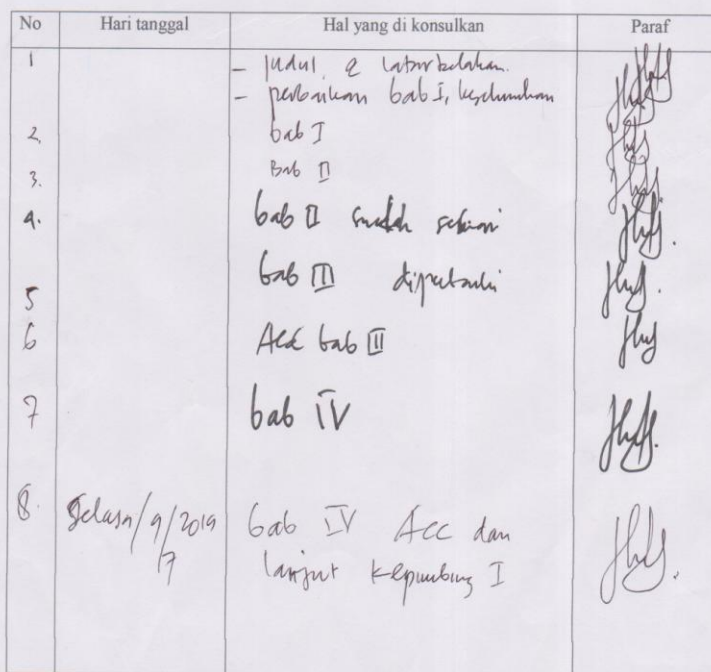 No Hari tanggal Hal yang di konsulkan Paraf
1 - judul & latar belakan.
- perbaikan bab I, keseluruhan
2. bab I
3. Bab II
4. bab II sudah selesai
5 bab III diperbaiki
6 Acc bab III
7 bab IV
8. Selasa/9/2019 bab IV Acc dan
/7 lanjut kepimbing I